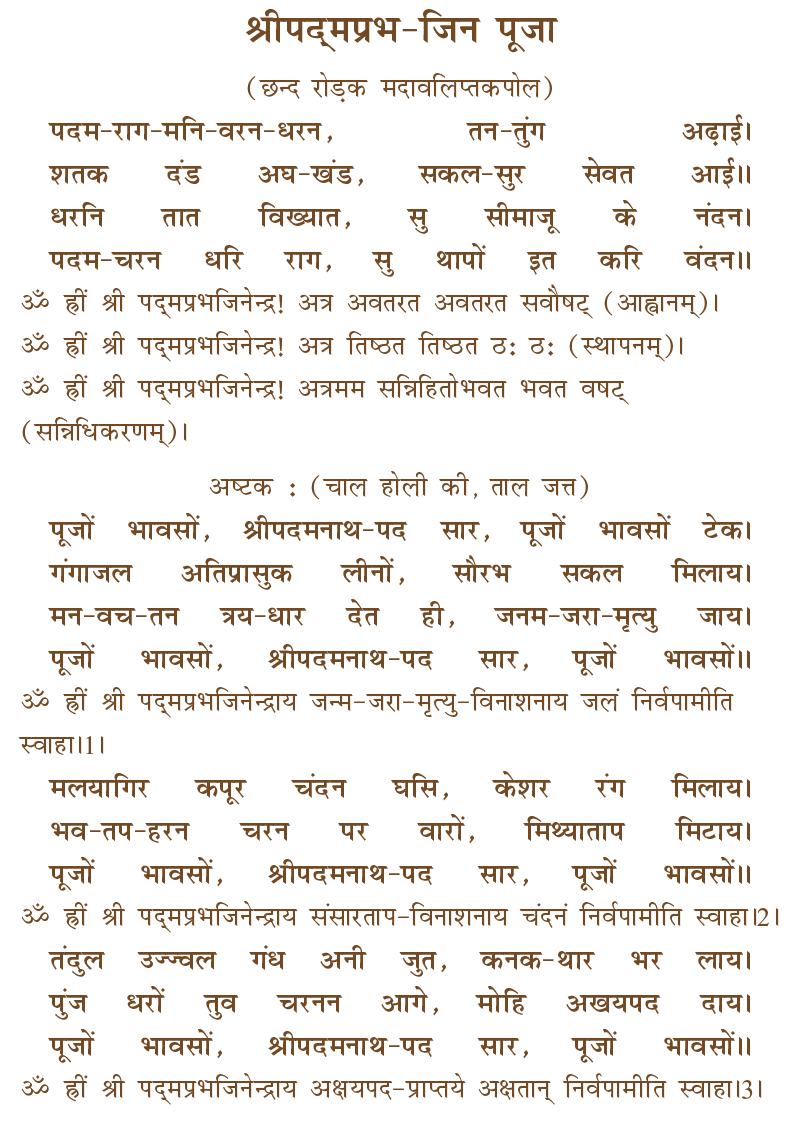 श्रीपद्मप्रभ-जिन पूजा
(छन्द रोड़क मदावलिप्तकपोल)
पदम-राग-मनि-वरन-धरन, तन-तुंग अढ़ाई।
शतक दंड अघ-खंड, सकल-सुर सेवत आई॥
धरनि तात विख्यात, सु सीमाजू के नंदन।
पदम-चरन धरि राग, सु थापों इत करि वंदन॥
ॐ ह्रीं श्री पद्मप्रभजिनेन्द्र! अत्र अवतरत अवतरत सवौषट् (आह्वानम्)।
ॐ ह्रीं श्री पद्मप्रभजिनेन्द्र! अत्र तिष्ठत तिष्ठत ठः ठः (स्थापनम्)।
ॐ ह्रीं श्री पद्मप्रभजिनेन्द्र! अत्रमम सन्निहितोभवत भवत वषट्
(सन्निधिकरणम्)।
अष्टक : (चाल होली की, ताल जत्त)
पूजों भावसों, श्रीपदमनाथ-पद सार, पूजों भावसों टेक।
गंगाजल अतिप्रासुक लीनों, सौरभ सकल मिलाय।
मन-वच-तन त्रय-धार देत ही, जनम-जरा-मृत्यु जाय।
पूजों भावसों, श्रीपदमनाथ-पद सार, पूजों भावसों॥
ॐ ह्रीं श्री पद्मप्रभजिनेन्द्राय जन्म-जरा-मृत्यु-विनाशनाय जलं निर्वपामीति
स्वाहा।1।
मलयागिर कपूर चंदन घसि, केशर रंग मिलाय।
भव-तप-हरन चरन पर वारों, मिथ्याताप मिटाय।
पूजों भावसों, श्रीपदमनाथ-पद सार, पूजों भावसों॥
ॐ ह्रीं श्री पद्मप्रभजिनेन्द्राय संसारताप-विनाशनाय चंदनं निर्वपामीति स्वाहा।2।
तंदुल उज्ज्वल गंध अनी जुत, कनक-थार भर लाय।
पुंज धरों तुव चरनन आगे, मोहि अखयपद दाय।
पूजों भावसों, श्रीपदमनाथ-पद सार, पूजों भावसों॥
ॐ ह्रीं श्री पद्मप्रभजिनेन्द्राय अक्षयपद-प्राप्तये अक्षतान् निर्वपामीति स्वाहा।3।